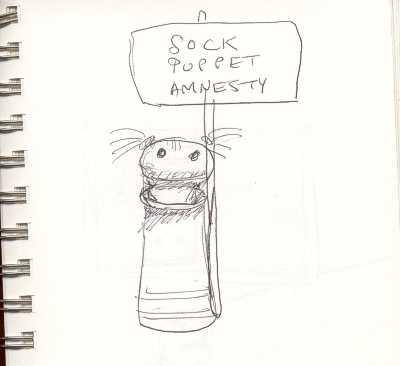 SOCK
PUPPET
AMNESTY